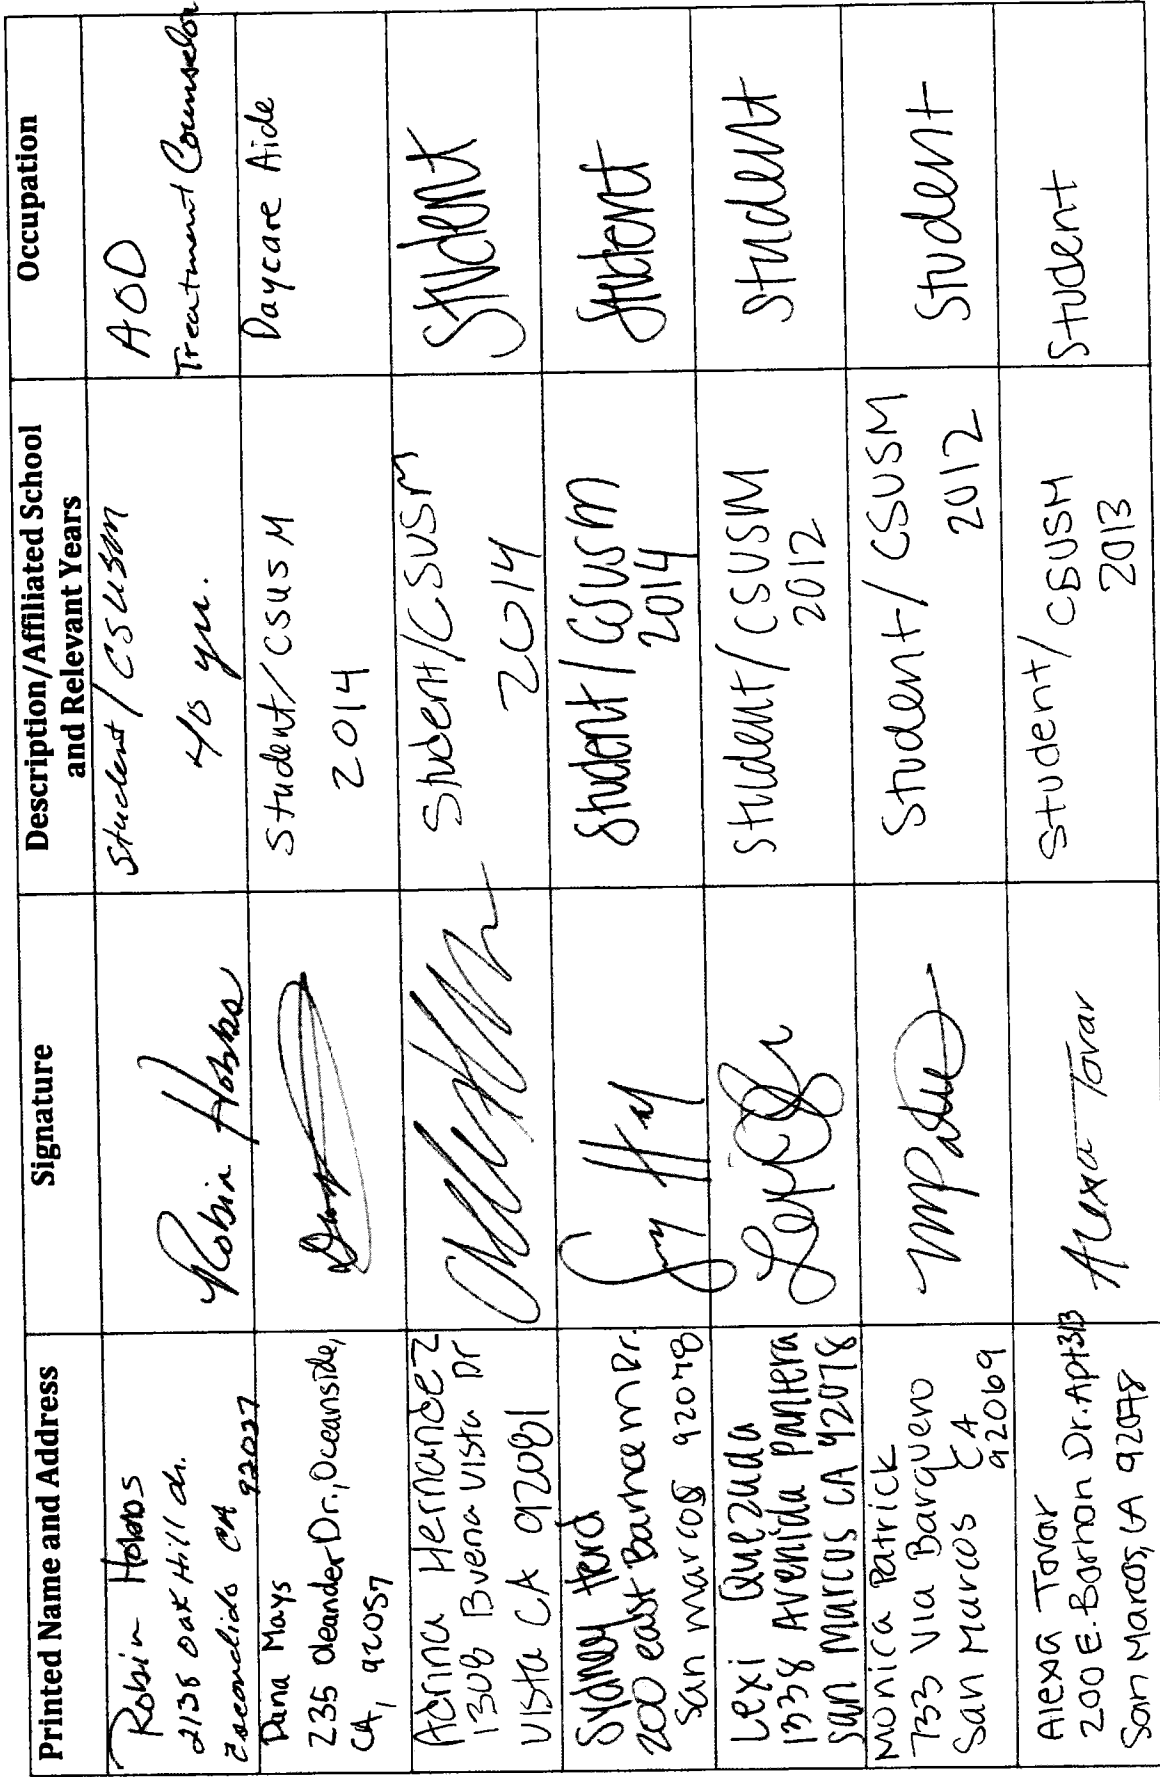 Printed Name and Address
Signature
Description/Affiliated School
and Relevant Years
Occupation
Robin Hobbs
2138 Oak Hill dr.
Escondido CA 92027
Robin Hobbs
Student / CSUSM
yr.
AOD
Treatment Counselor
Dana Mays
235 Oleander Dr., Oceanside,
CA, 92057
Student/CSUSM
2014
Daycare Aide
Adrina Hernandez
1308 Buena Vista Dr
Vista CA 92081
Student/CSUSM
2014
Student
Sydney Herd
200 east Barham Dr.
San marcos 92078
Student/CSUSM
2014
Student
Lexi Quezada
1338 Avenida Pantera
San Marcos CA 92078
Student/CSUSM
2012
Student
Monica Patrick
733 Via Barquero
San Marcos CA
92069
Student/CSUSM
2012
Student
Alexa Tovar
200 E. Barhan Dr. Apt 313
San Marcos, CA 92078
Alexa Tovar
Student/CSUSM
2013
Student